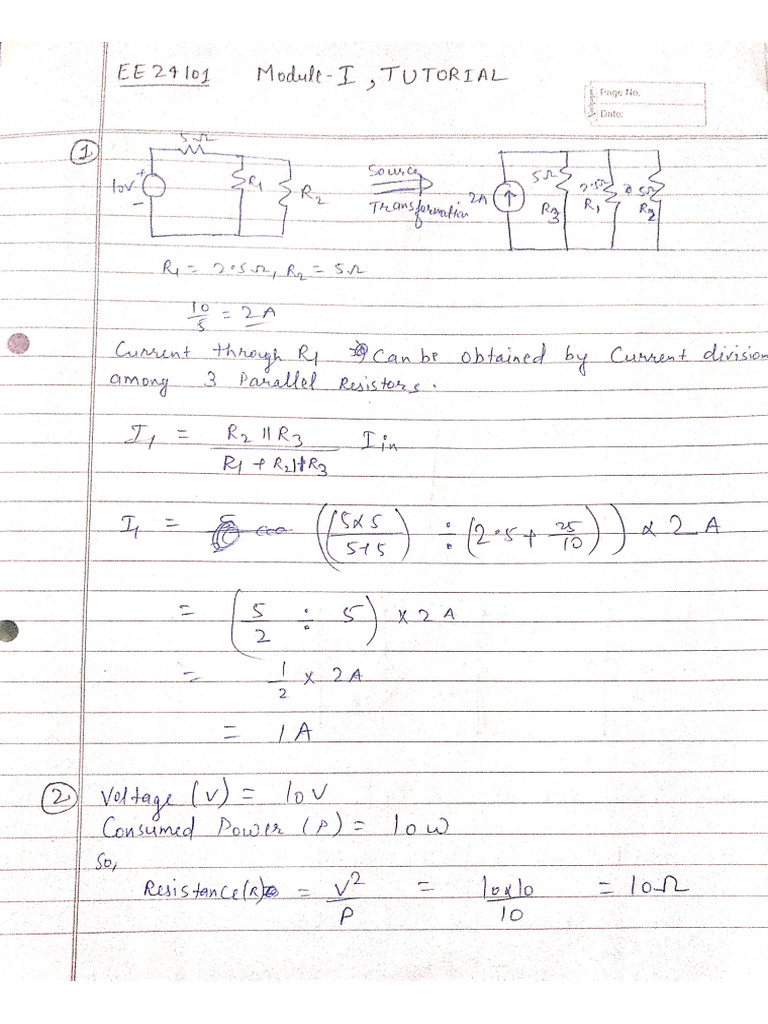 EE24101 Module-I, TUTORIAL
Page No.
Date:
1
5Ω
10V
+
-
R1
R2
Source
Transformation
2A
5Ω
R3
2.5Ω
R1
5Ω
R2
R1 = 2.5Ω, R2 = 5Ω
10/5 = 2A
Current through R1 Can be obtained by Current division
among 3 Parallel Resistors.
I1 = (R2 || R3)/(R1 + R2||R3) Iin
I1 = ((5×5)/(5+5) ÷ (2.5 + 25/10)) × 2 A
= (5/2 ÷ 5) × 2A
= 1/2 × 2A
= 1A
2 Voltage (V) = 10V
Consumed Power (P) = 10W
So,
Resistance(R) = V²/P = 10×10/10 = 10Ω